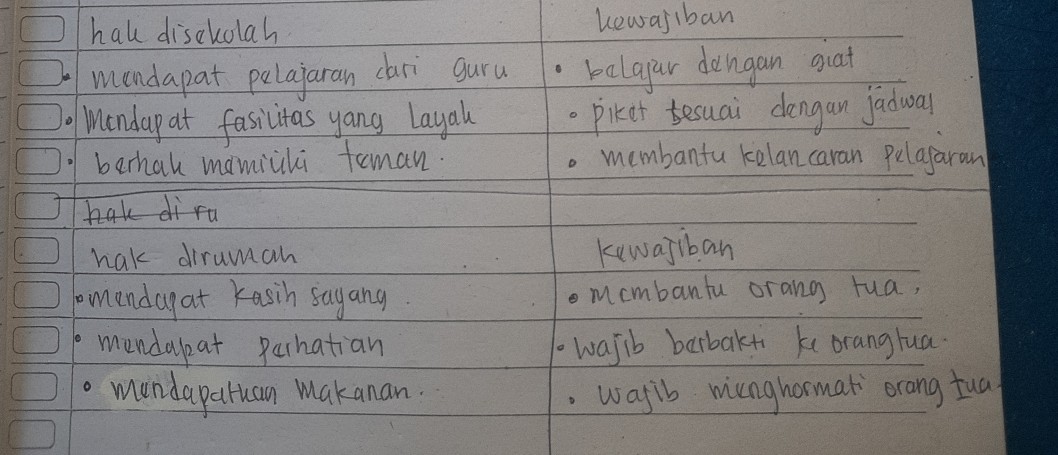 hak disekolah kewajiban
• mendapat pelajaran dari guru • belajar dengan giat
• Mendapat fasilitas yang layak • piket sesuai dengan jadwal
• berhak memiliki teman. • membantu kelancaran pelajaran
hak di ru
hak dirumah kewajiban
• mendapat kasih sayang. • membantu orang tua,
• mendapat perhatian • wajib berbakti ke orangtua.
• Mendapatkan makanan. • wajib menghormati orang tua.